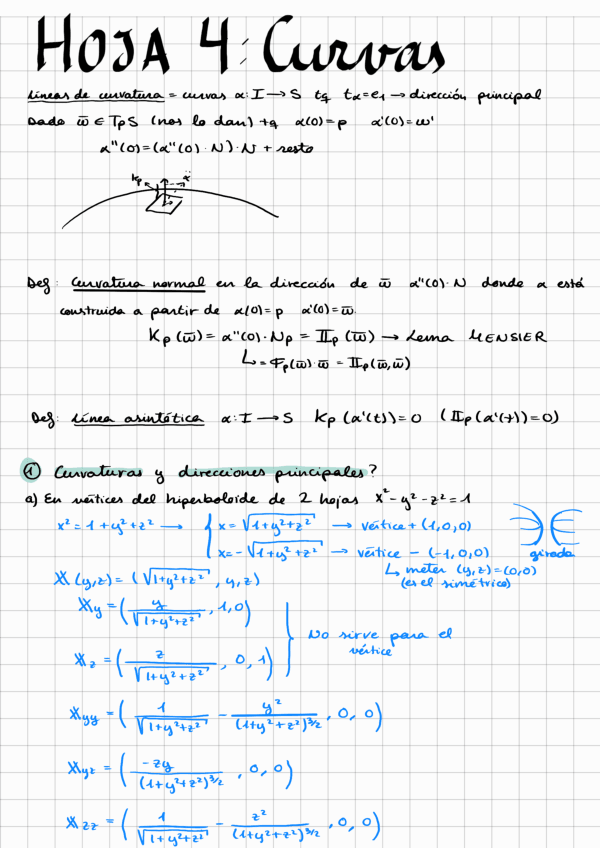 HOJA 4: Curvas
Líneas de curvatura = curvas α: I → S tq tα = e₁ → dirección principal
Dado w̄ ∈ TpS (nos lo dan) tq α(0)=p α'(0)=w'
α''(0)=(α''(0)·N)·N + resto
Kp α̈
Def: Curvatura normal en la dirección de w̄ α''(0)·N donde α está
construida a partir de α(0)=p α'(0)=w̄.
Kp(w̄) = α''(0)·Np = IIp(w̄) → Lema MENSIER
↳ = φp(w̄)·w̄ = IIp(w̄,w̄)
Def: línea asintótica α: I → S Kp(α'(t))=0 (IIp(α'(t))=0)
① Curvaturas y direcciones principales?
a) En vértices del hiperboloide de 2 hojas x²-y²-z²=1
x² = 1+y²+z² → { x=√(1+y²+z²) → vértice + (1,0,0)
x=-√(1+y²+z²) → vértice - (-1,0,0)
girado
↳ meter (y,z)=(0,0)
(es el simétrico)
𝕏(y,z) = (√(1+y²+z²), y, z)
𝕏y = (y/√(1+y²+z²), 1, 0)
No sirve para el
vértice
𝕏z = (z/√(1+y²+z²), 0, 1)
𝕏yy = (1/√(1+y²+z²) - y²/(1+y²+z²)^3/2, 0, 0)
𝕏yz = (-zy/(1+y²+z²)^3/2, 0, 0)
𝕏zz = (1/√(1+y²+z²) - z²/(1+y²+z²)^3/2, 0, 0)